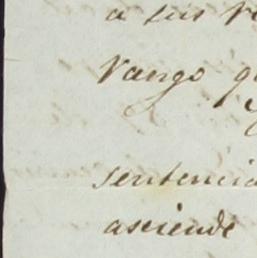 a sus
Vargo
sentencia
asciende